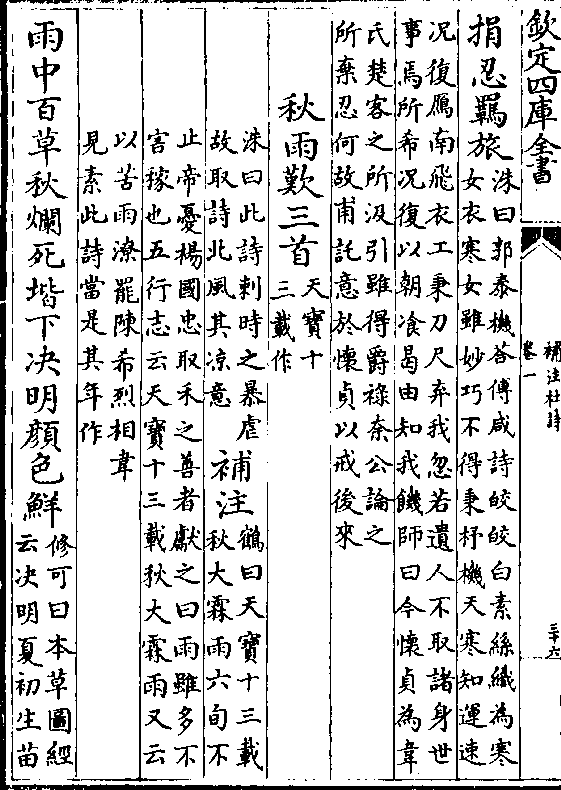 欽定四庫全書
補注杜詩
卷一
三十六
捐忍羈旅
洙曰郭泰機荅傅咸詩皎皎白素絲織為寒
女衣寒女雖妙巧不得秉杼機天寒知運速
况復鴈南飛衣工秉刀尺弃我忽若遺人不取諸身世
事焉所希况復以朝飡曷由知我饑師曰今懷貞為韋
氏楚客之所汲引雖得爵祿柰公論之
所棄忍何故甫託意於懷貞以戒後來
秋雨歎三首
天寶十
三載作
洙曰此詩刺時之暴虐
故取詩北風其凉意
補注
鶴曰天寶十三載
秋大霖雨六旬不
止帝憂楊國忠取禾之善者獻之曰雨雖多不
害稼也五行志云天寶十三載秋大霖雨又云
以苦雨潦罷陳希烈相韋
見素此詩當是其年作
雨中百草秋爛死堦下决明顏色鮮
修可曰本草圖經
云决明夏初生苗